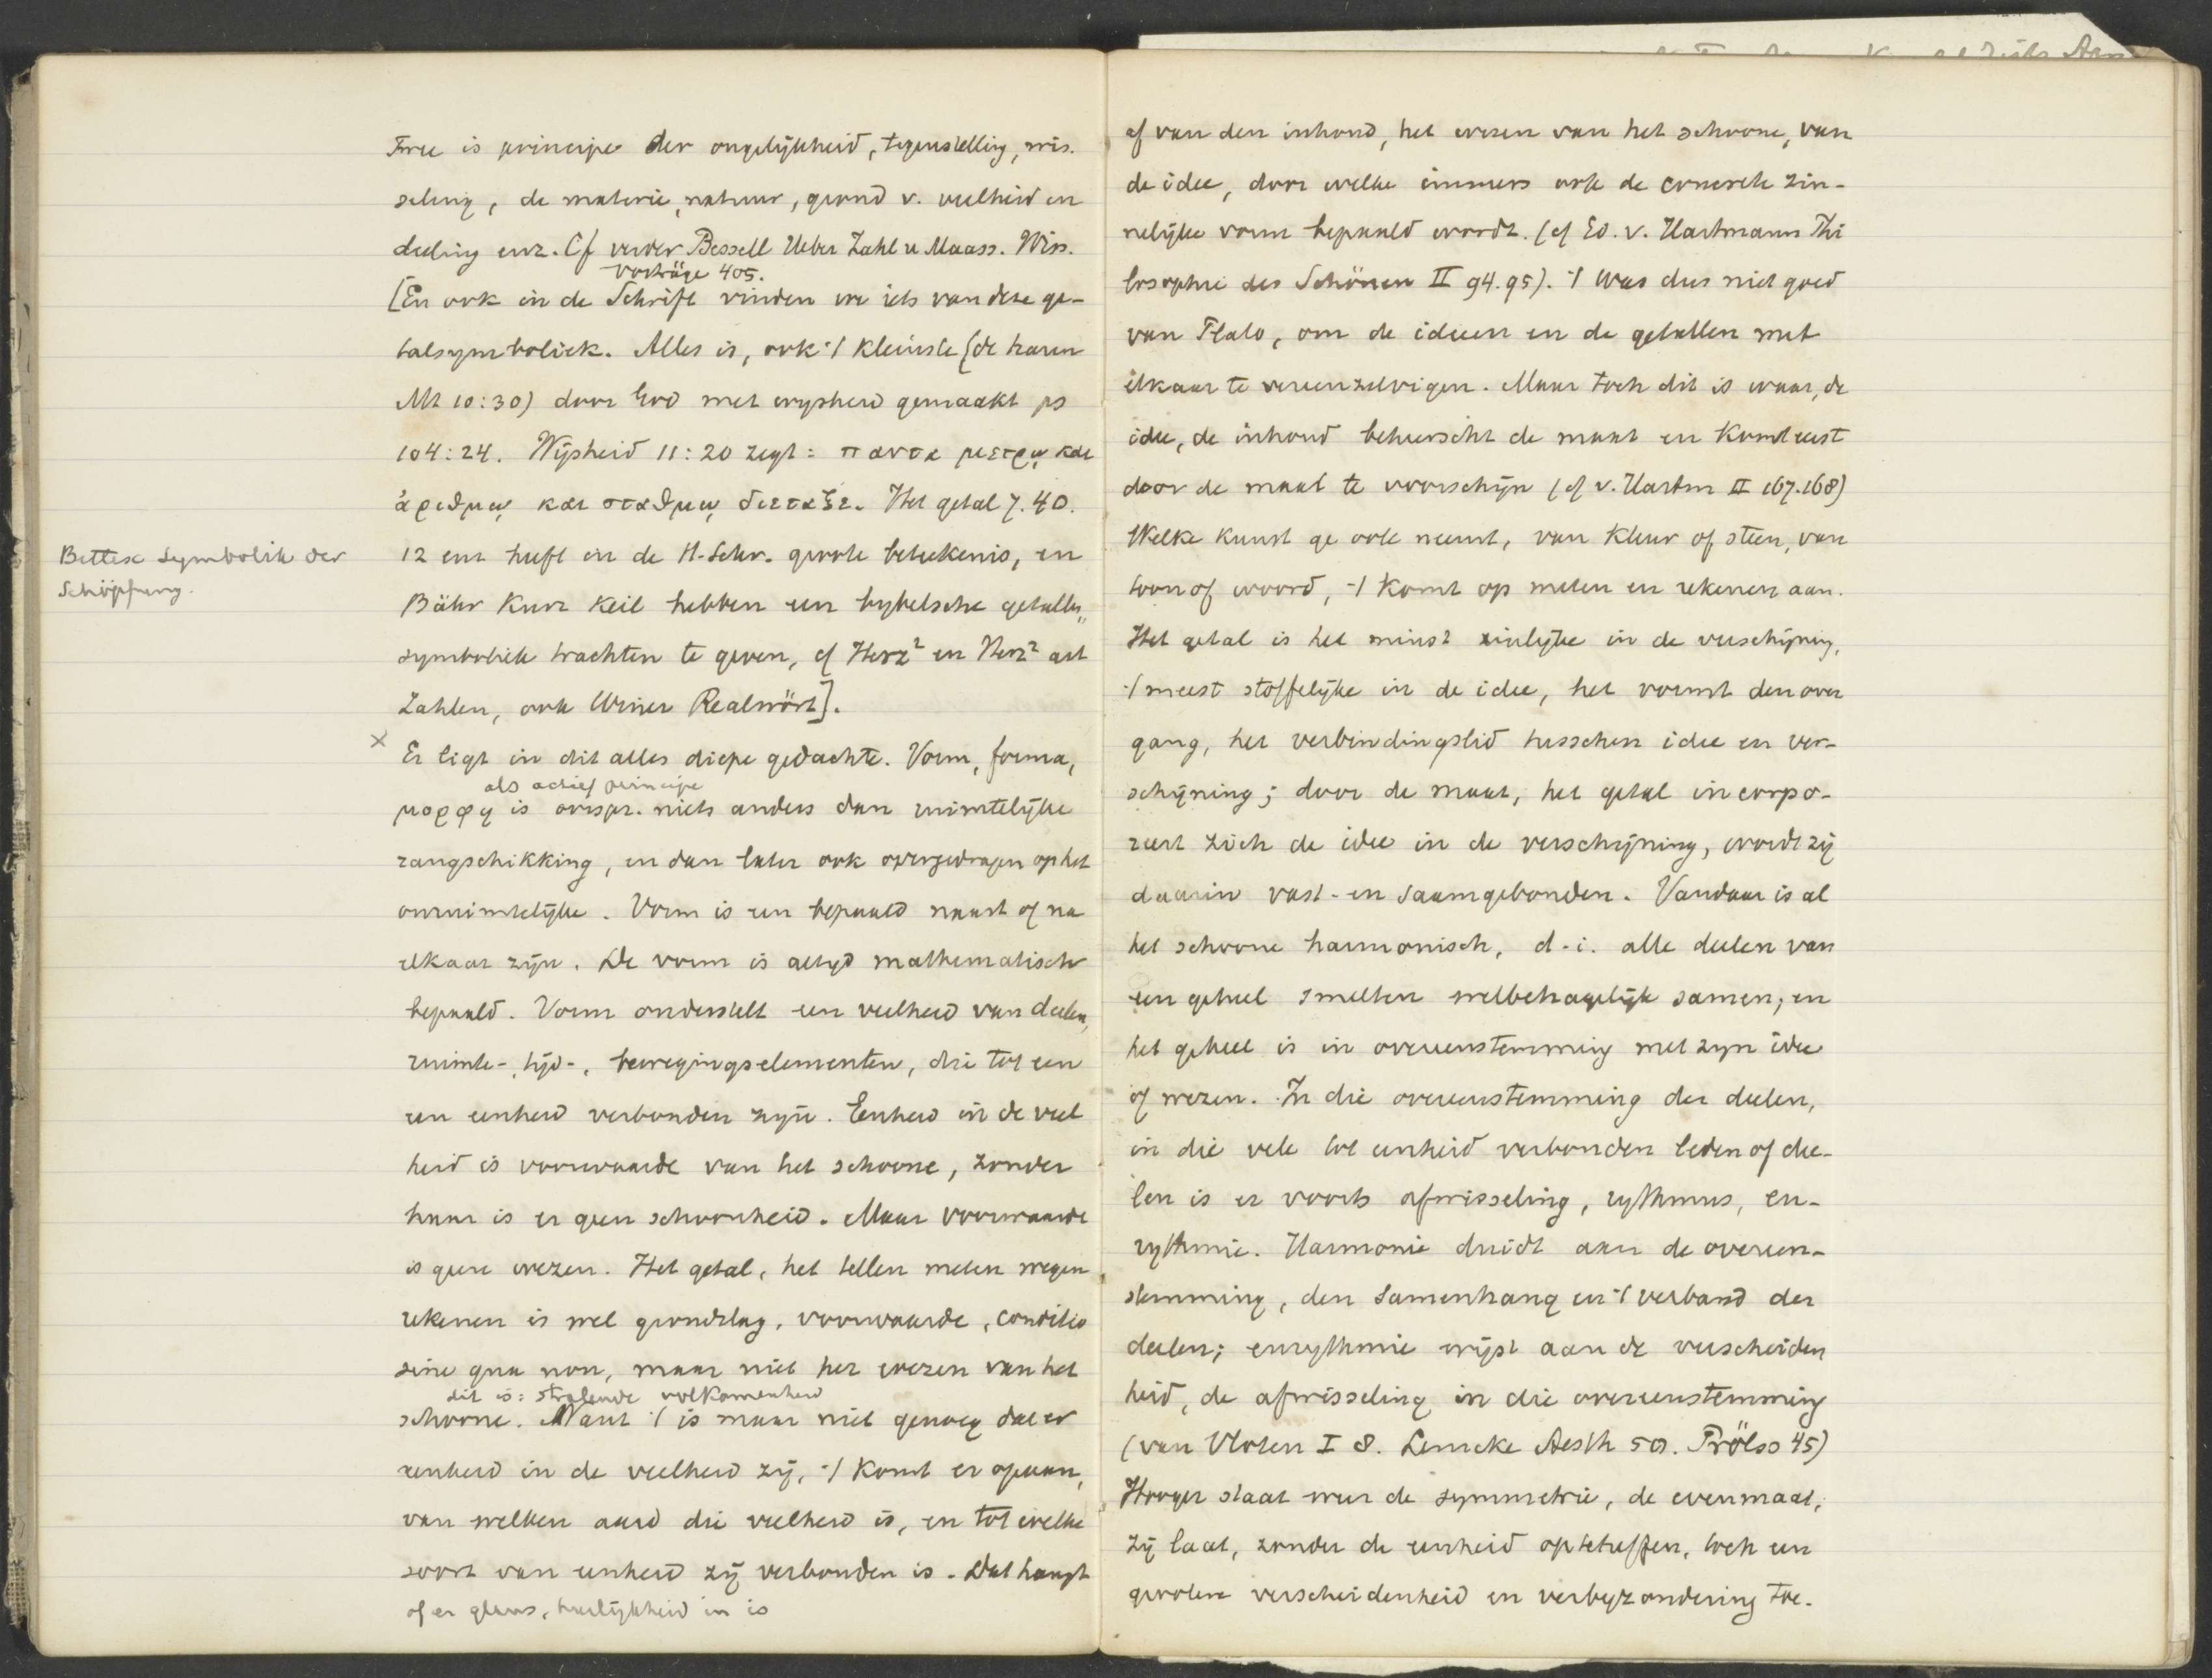 Twee is principe der ongelijkheid, tegenstelling, wis-
seling, de materie, natuur, grond v. veelheid en
deeling enz. Cf verder Bessell Ueber Zahl u Maass. Wiss.
Vorträge 405.
[En ook in de Schrift vinden we iets van deze ge-
talsymboliek. Alles is, ook 't kleinste (de haren
Mt 10:30) door God met wysheid gemaakt ps
104:24. Wijsheid 11:20 zegt: παντα μετρῳ και
ἀριθμῳ και σταθμῳ διεταξε. Het getal 7. 40.
12 enz heeft in de H. Schr. groote beteekenis, en
Bettex Symbolik der
Schöpfung.
Bähr Kurz Keil hebben een bybelsche getallen,,
symboliek trachten te geven, cf Herz² en Herz² art
Zahlen, ook Winer Realwört].
x Er ligt in dit alles diepe gedachte. Vorm, forma,
als actief principe
μορφη is oorspr. niets anders dan ruimtelijke
rangschikking, en dan later ook overgedragen op het
onruimtelijke. Vorm is een bepaald naast of na
elkaar zijn. De vorm is altyd mathematisch
bepaald. Vorm onderstelt een veelheid van deelen,
ruimte-, tijd-, bewegingselementen, die tot een
een eenheid verbonden zijn. Eenheid in de veel
heid is voorwaarde van het schoone, zonder
haar is er geen schoonheid. Maar voorwaarde
is geen wezen. Het getal, het tellen meten wegen
rekenen is wel grondslag, voorwaarde, conditio
sine qua non, maar niet het wezen van het
dit is: stralende volkomenheid
schoone. Want 't is maar niet genoeg dat er
eenheid in de veelheid zij, 't komt er op aan,
van welken aard die veelheid is, en tot welke
soort van eenheid zij verbonden is. Dat hangt
of er glans, heerlijkheid in is
af van den inhoud, het wezen van het schoone, van
de idee, door welke immers ook de concrete zin-
nelijke vorm bepaald wordt. (cf Ed. v. Hartmann Phi
losophie des Schönen II 94.95). 't Was dus niet goed
van Plato, om de ideeen en de getallen met
elkaar te vereenzelvigen. Maar toch dit is waar, de
idee, de inhoud beheerscht de maat en komt eerst
door de maat te voorschijn (cf v. Hartm II 167.168)
Welke kunst ge ook neemt, van kleur of steen, van
toon of woord, 't komt op meten en rekenen aan.
Het getal is het minst zinlijke in de verschijning,
't meest stoffelijke in de idee, het vormt den over
gang, het verbindingslid tusschen idee en ver-
schijning; door de maat, het getal incorpo-
reert zich de idee in de verschijning, wordt zij
daarin vast- en saamgebonden. Vandaar is al
het schoone harmonisch, d.i. alle deelen van
een geheel smelten welbehagelijk samen, en
het geheel is in overeenstemming met zyn idee
of wezen. In die overeenstemming der deelen,
in die vele tot eenheid verbonden leden of dee-
len is er voorts afwisseling, rythmus, eu-
rythmie. Harmonie duidt aan de overeen-
stemming, den samenhang en 't verband der
deelen; eurythmie wijst aan de verscheiden
heid, de afwisseling in die overeenstemming
(van Vloten I 8. Lemcke Aesth 50. Prölss 45)
Hooger staat weer de symmetrie, de evenmaat,
zij laat, zonder de eenheid opteheffen, toch een
grootere verscheidenheid en verbyzondering toe.